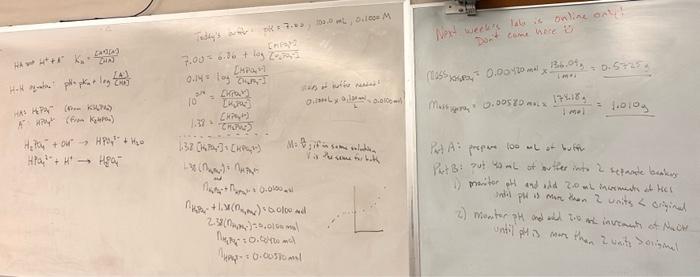 Today's buffer: pH = 7.00, 100.0 mL, 0.1000 M
HA ⇌ H⁺ + A⁻ Ka = [H⁺][A⁻]/[HA]
H-H equation: pH = pKa + log [A⁻]/[HA]
HA: H₂PO₄⁻ (from KH₂PO₄)
A⁻: HPO₄²⁻ (from K₂HPO₄)
H₂PO₄⁻ + OH⁻ → HPO₄²⁻ + H₂O
HPO₄²⁻ + H⁺ → H₂PO₄⁻
7.00 = 6.86 + log [HPO₄²⁻]/[H₂PO₄⁻]
0.14 = log [HPO₄²⁻]/[H₂PO₄⁻]
10^0.14 = [HPO₄²⁻]/[H₂PO₄⁻]
1.38 = [HPO₄²⁻]/[H₂PO₄⁻]
1.38 [H₂PO₄⁻] = [HPO₄²⁻]
1.38 (nH₂PO₄⁻) = nHPO₄²⁻
and
nH₂PO₄⁻ + nHPO₄²⁻ = 0.0100 mol
nH₂PO₄⁻ + 1.38(nH₂PO₄⁻) = 0.0100 mol
2.38(nH₂PO₄⁻) = 0.0100 mol
nH₂PO₄⁻ = 0.00420 mol
nHPO₄²⁻ = 0.00580 mol
of buffer needed:
0.1000 L x 0.1000 mol/L = 0.0100 mol
M = n/V; if in same solution
V is the same for both
Next week's lab is online only!
Don't come here
Mass KH₂PO₄ = 0.00420 mol x 136.09g/1 mol = 0.5725g
Mass K₂HPO₄ = 0.00580 mol x 174.18g/1 mol = 1.010g
Part A: prepare 100 mL of buffer
Part B: put 40 mL of buffer into 2 separate beakers
1) monitor pH and add 2.0 mL increments of HCl
until pH is more than 2 units < original
2) monitor pH and add 2.0 mL increments of NaOH
until pH is more than 2 units > original